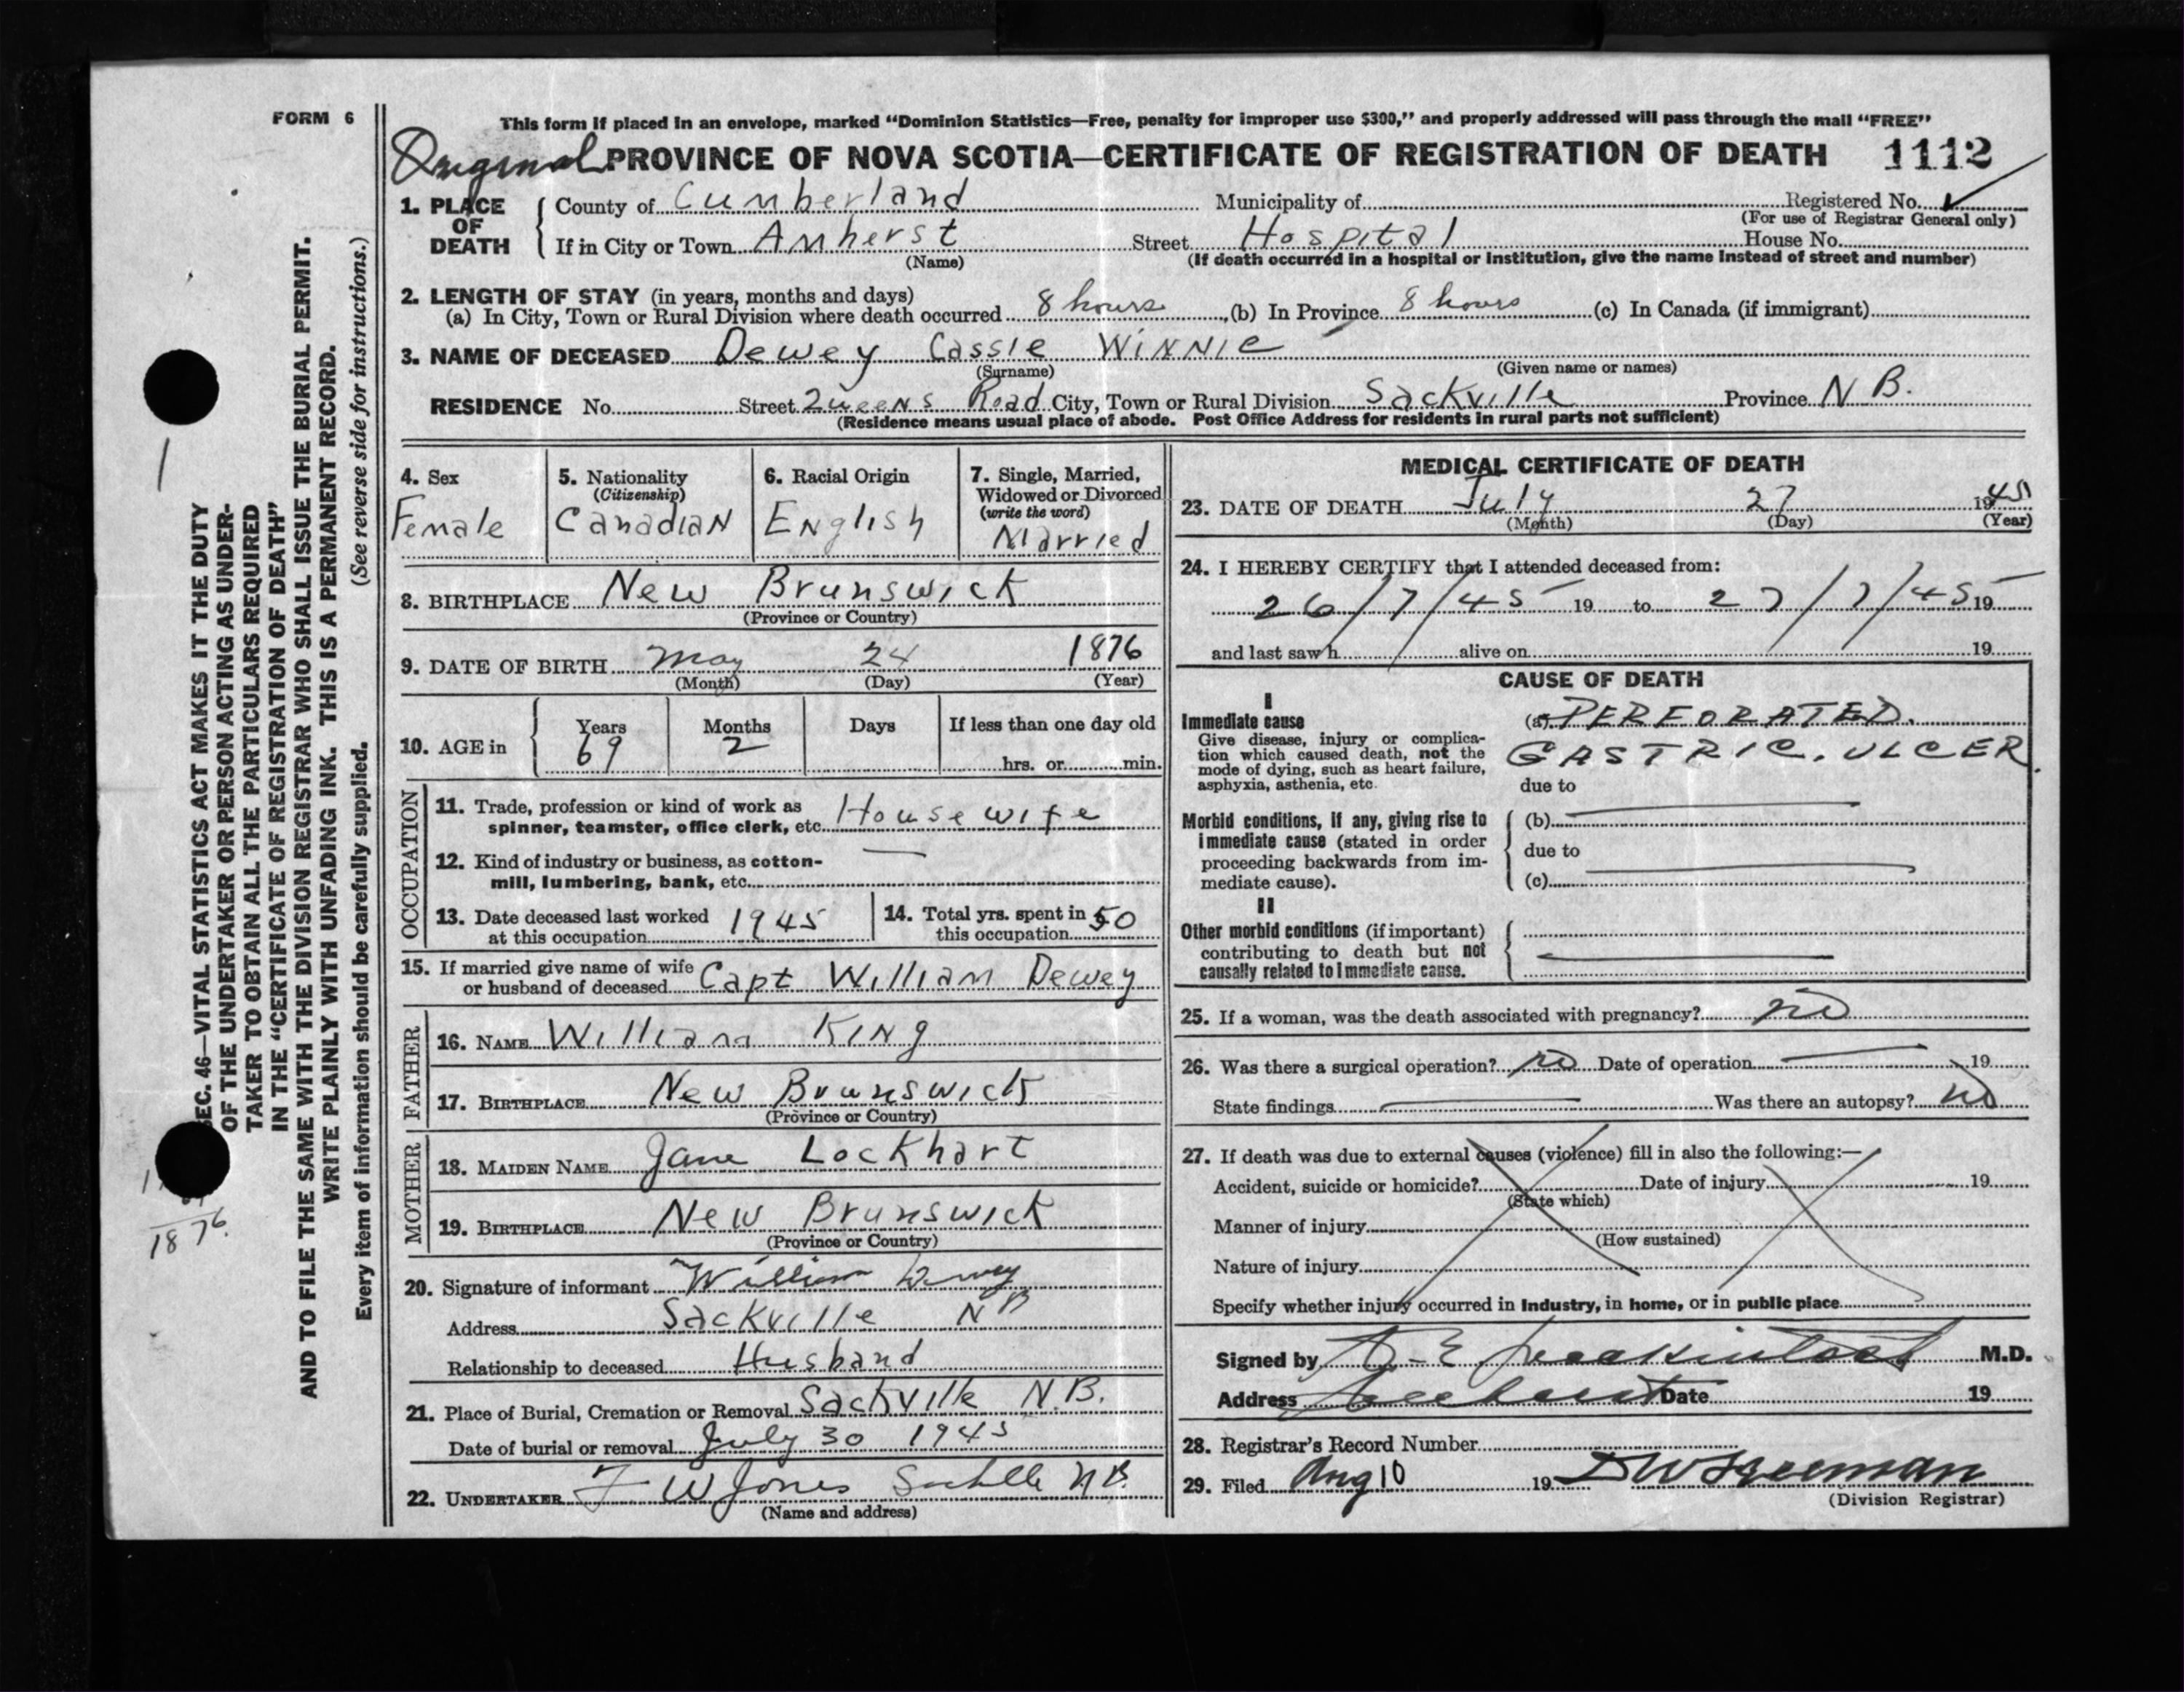 FORM 6
This form if placed in an envelope, marked “Dominion Statistics—Free, penalty for improper use $300,” and properly addressed will pass through the mail “FREE”
Original PROVINCE OF NOVA SCOTIA—CERTIFICATE OF REGISTRATION OF DEATH 1112
1. PLACE OF DEATH County of Cumberland Municipality of Registered No.
(For use of Registrar General only)
If in City or Town Amherst Street Hospital House No.
(Name) (If death occurred in a hospital or institution, give the name instead of street and number)
2. LENGTH OF STAY (in years, months and days)
(a) In City, Town or Rural Division where death occurred 8 hours (b) In Province 8 hours (c) In Canada (if immigrant)
3. NAME OF DECEASED Dewey Cassie Winnie
(Surname) (Given name or names)
RESIDENCE No. Street Queens Road City, Town or Rural Division Sackville Province N B.
(Residence means usual place of abode. Post Office Address for residents in rural parts not sufficient)
4. Sex
Female
5. Nationality
(Citizenship)
Canadian
6. Racial Origin
English
7. Single, Married,
Widowed or Divorced
(write the word)
Married
8. BIRTHPLACE New Brunswick
(Province or Country)
9. DATE OF BIRTH May 24 1876
(Month) (Day) (Year)
10. AGE in Years Months Days If less than one day old
69 2 hrs. or min.
OCCUPATION
11. Trade, profession or kind of work as
spinner, teamster, office clerk, etc. Housewife
12. Kind of industry or business, as cotton-
mill, lumbering, bank, etc.
13. Date deceased last worked
at this occupation 1945
14. Total yrs. spent in
this occupation 50
15. If married give name of wife
or husband of deceased Capt William Dewey
FATHER
16. NAME William King
17. BIRTHPLACE New Brunswick
(Province or Country)
MOTHER
18. MAIDEN NAME Jane Lockhart
19. BIRTHPLACE New Brunswick
(Province or Country)
20. Signature of informant William Dewey
Address Sackville N B
Relationship to deceased Husband
21. Place of Burial, Cremation or Removal Sackville N.B.
Date of burial or removal July 30 1945
22. UNDERTAKER F W Jones Sackville N B.
(Name and address)
MEDICAL CERTIFICATE OF DEATH
23. DATE OF DEATH July 27 1945
(Month) (Day) (Year)
24. I HEREBY CERTIFY that I attended deceased from:
26/7/45 19 to 27/7/45 19
and last saw h alive on 19
CAUSE OF DEATH
I
Immediate cause
Give disease, injury or complica-
tion which caused death, not the
mode of dying, such as heart failure,
asphyxia, asthenia, etc.
(a) PERFORATED.
GASTRIC. ULCER.
due to
Morbid conditions, if any, giving rise to
immediate cause (stated in order
proceeding backwards from im-
mediate cause).
(b)
due to
(c)
II
Other morbid conditions (if important)
contributing to death but not
causally related to immediate cause.
25. If a woman, was the death associated with pregnancy? no
26. Was there a surgical operation? no Date of operation 19
State findings Was there an autopsy? no
27. If death was due to external causes (violence) fill in also the following:—
Accident, suicide or homicide? Date of injury 19
(State which)
Manner of injury
(How sustained)
Nature of injury
Specify whether injury occurred in Industry, in home, or in public place
Signed by M.D.
Address Date 19
28. Registrar's Record Number
29. Filed Aug 10 19
(Division Registrar)
SEC. 46—VITAL STATISTICS ACT MAKES IT THE DUTY
OF THE UNDERTAKER OR PERSON ACTING AS UNDER-
TAKER TO OBTAIN ALL THE PARTICULARS REQUIRED
IN THE “CERTIFICATE OF REGISTRATION OF DEATH”
AND TO FILE THE SAME WITH THE DIVISION REGISTRAR WHO SHALL ISSUE THE BURIAL PERMIT.
WRITE PLAINLY WITH UNFADING INK. THIS IS A PERMANENT RECORD.
Every item of information should be carefully supplied. (See reverse side for instructions.)
1876.